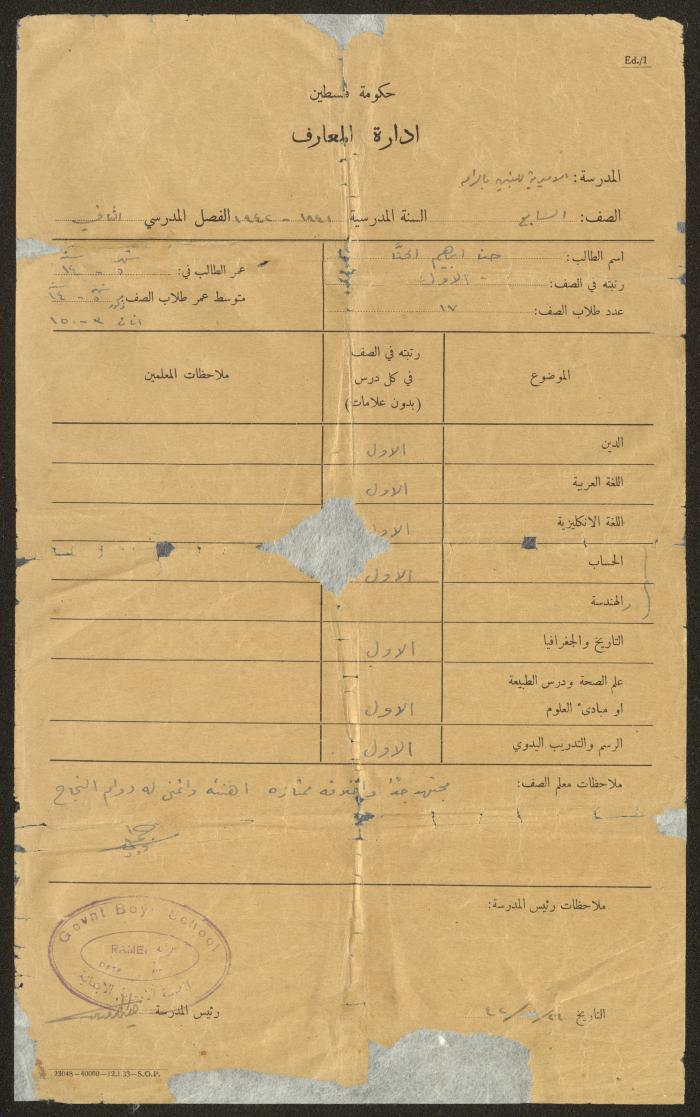 Ed./1
حكومة فلسطين
ادارة المعارف
المدرسة: الاميرية للبنين بالرامه
الصف: السابع السنة المدرسية ١٩٤١ - ١٩٤٢ الفصل المدرسي الثاني
اسم الطالب: حنا ابراهيم الحنا
رتبته في الصف: الاول
عدد طلاب الصف: ١٧
عمر الطالب في: ٥ - ١٤
متوسط عمر طلاب الصف: ٥ - ١٤
الموضوع
رتبته في الصف
في كل درس
(بدون علامات)
ملاحظات المعلمين
الدين الاول
اللغة العربية الاول
اللغة الانكليزية الاول
الحساب الاول
الهندسة
التاريخ والجغرافيا الاول
علم الصحة ودرس الطبيعة
او مبادىء العلوم الاول
الرسم والتدريب اليدوي الاول
ملاحظات معلم الصف: مجتهد جدًا واخلاقه ممتازه اهنئه واتمنى له دوام النجاح
ملاحظات رئيس المدرسة:
Govnt Boys School
RAMEH رامه
DATE
التاريخ
رئيس المدرسة
23048—40000—12.1.33—S.O.P.